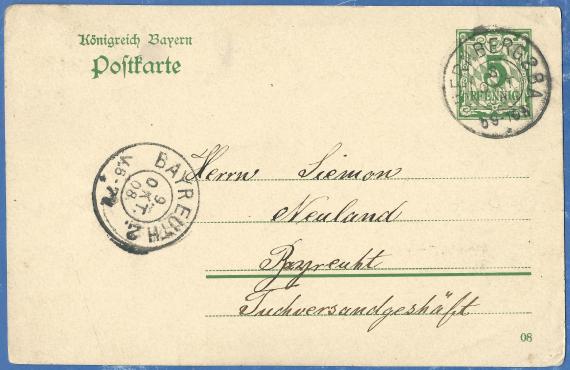 Königreich Bayern
Postkarte
5
PFENNIG
BAMBERG 2 B.A.
BAYREUTH 2.
9.
OKT.
08
Herrn Siemon
Neuland
Bayreuht
Tuchversandgeshäft
08